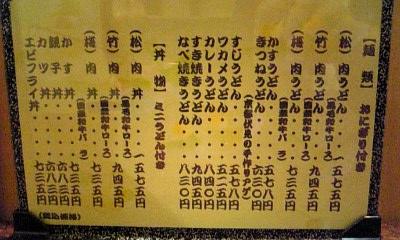 【麺類】 おにぎり付き
(松)肉うどん・・・・一五七五円
(黒毛和牛ロース)
(竹)肉うどん・・・・九四五円
(国産和牛ロース)
(梅)肉うどん・・・・七三五円
(国産和牛バラ)
かすうどん・・・・五七八円
きつねうどん・・・・六三〇円
(京都伏見の手作りアゲ)
すじうどん・・・・五七八円
ワカメうどん・・・・五二五円
カレーうどん・・・・八四〇円
すき焼きうどん・・・・九四五円
なべ焼きうどん・・・・八三〇円
【丼物】 ミニうどん付き
(松)肉丼・・・・一五七五円
(黒毛和牛ロース)
(竹)肉丼・・・・九四五円
(国産和牛ロース)
(梅)肉丼・・・・七三五円
(国産和牛バラ)
かす丼・・・・七三五円
親子丼・・・・六八三円
カツ丼・・・・六八三円
エビフライ丼・・・・七三五円
(税込価格)